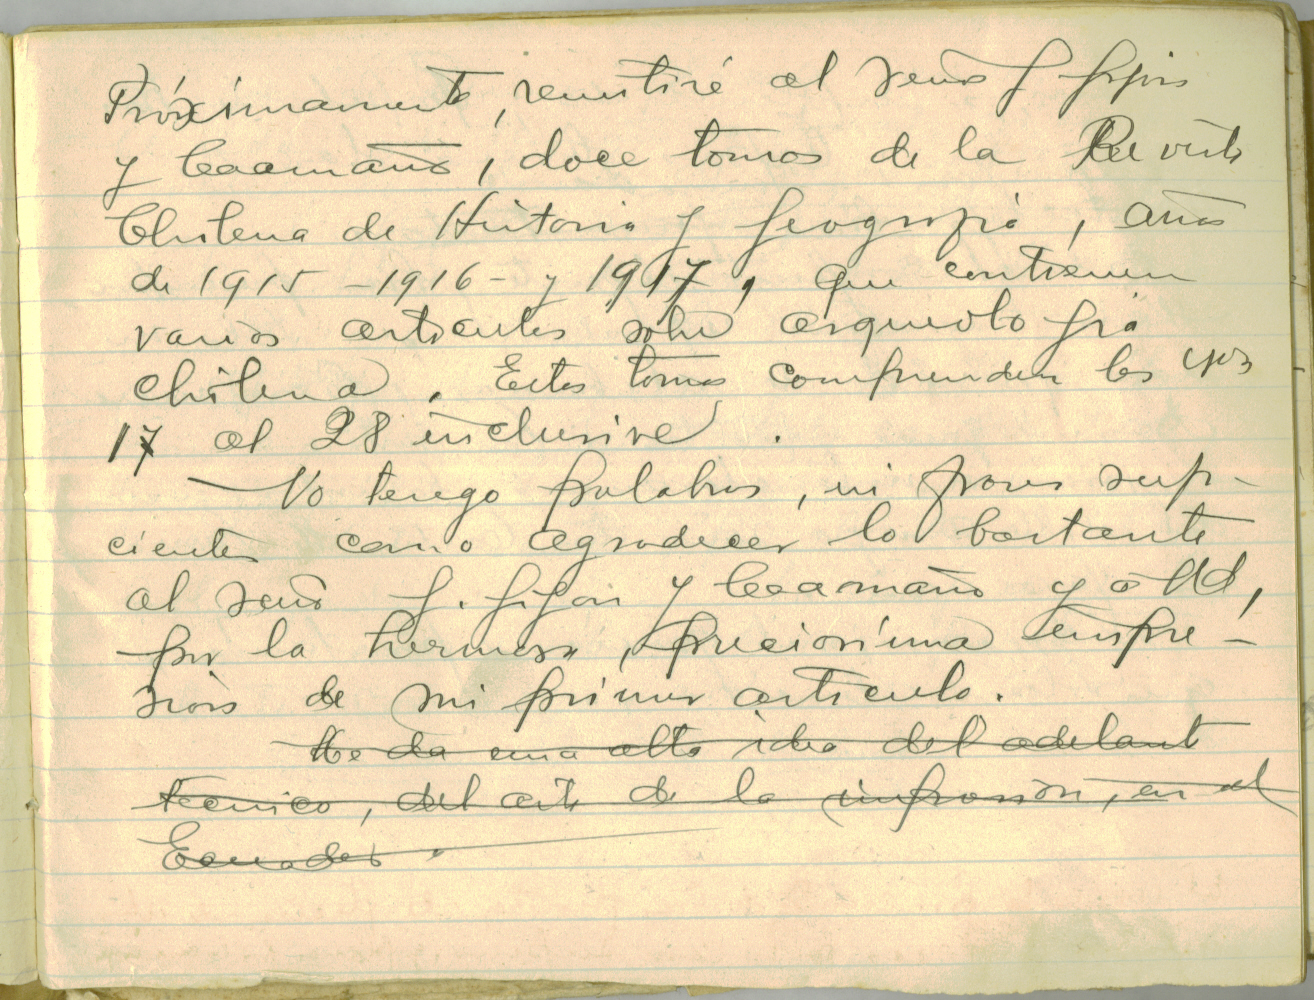 Próximamente, remitiré al señor J Jijón
y Caamaño, doce tomos de la Revista
Chilena de Historia y Geografía, años
de 1915 - 1916 - y 1917, que contienen
varios artículos sobre arqueología
chilena. Estos tomos comprenden los
17 al 28 inclusive.
— No tengo palabras, ni frases sufi-
cientes como agradecer lo bastante
al señor J. Jijón y Caamaño y a Ud,
por la hermosa, preciosísima impre-
sión de mi primer artículo.
Me da una alta idea del adelanto
técnico, del arte de la impresión, en el
Ecuador.